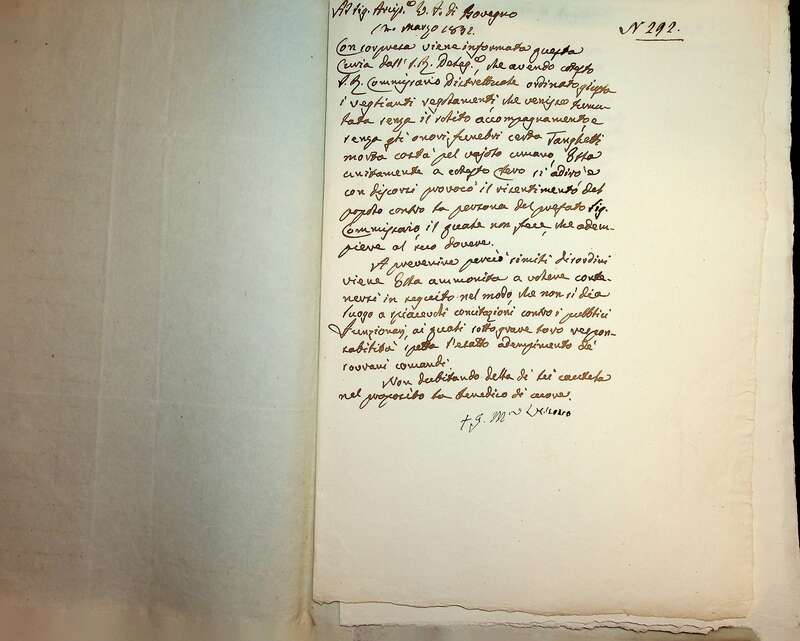 Al Sig. Arcip.e V. F. di Bovegno
marzo 1832.
N 292.
Con sorpresa viene informata questa
Curia dall' I. R. Deleg.e, che avendo cotesto
I. R. Commissario Distrettuale ordinato giusta
i veglianti regolamenti che venisse tumu-
lata senza il solito accompagnamento e
senza gli onori funebri certa Tanghetti
morta costà pel vajolo umano, Ella
unitamente a cotesto Clero si adirò e
con discorsi provocò il risentimento del
popolo contro la persona del prefato Sig.
Commissario, il quale non fece, che adem-
piere al suo dovere.
A prevenire perciò simili disordini
viene Ella ammonita a volere conte-
nersi in seguito nel modo, che non si dia
luogo a spiacevoli concitazioni contro i pubblici
Funzionarj, ai quali sotto grave loro respon-
sabilità spetta l'esatto adempimento de'
sovrani comandi.
Non dubitando della di lei cautela
nel proposito la benedico di cuore.
+ G. M. Vescovo